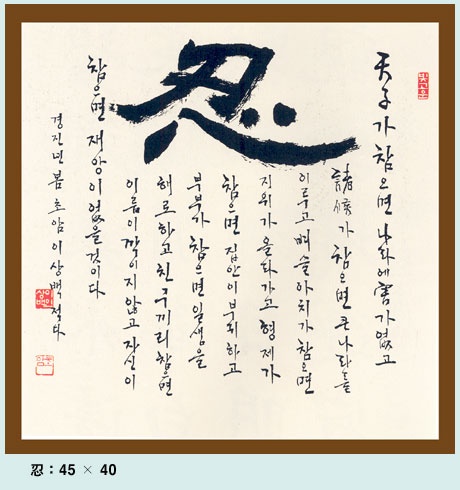 忍
天子가 참으면 나라에 害가 없고
諸侯가 참으면 큰 나라를
이루고 벼슬아치가 참으면
지위가 올라가고 형제가
참으면 집안이 부귀하고
부부가 참으면 일생을
해로하고 친구끼리 참으면
이름이 깎이지 않고 자신이
참으면 재앙이 없을 것이다
경진년 봄 초암 이상백 적다
忍 : 45 × 40